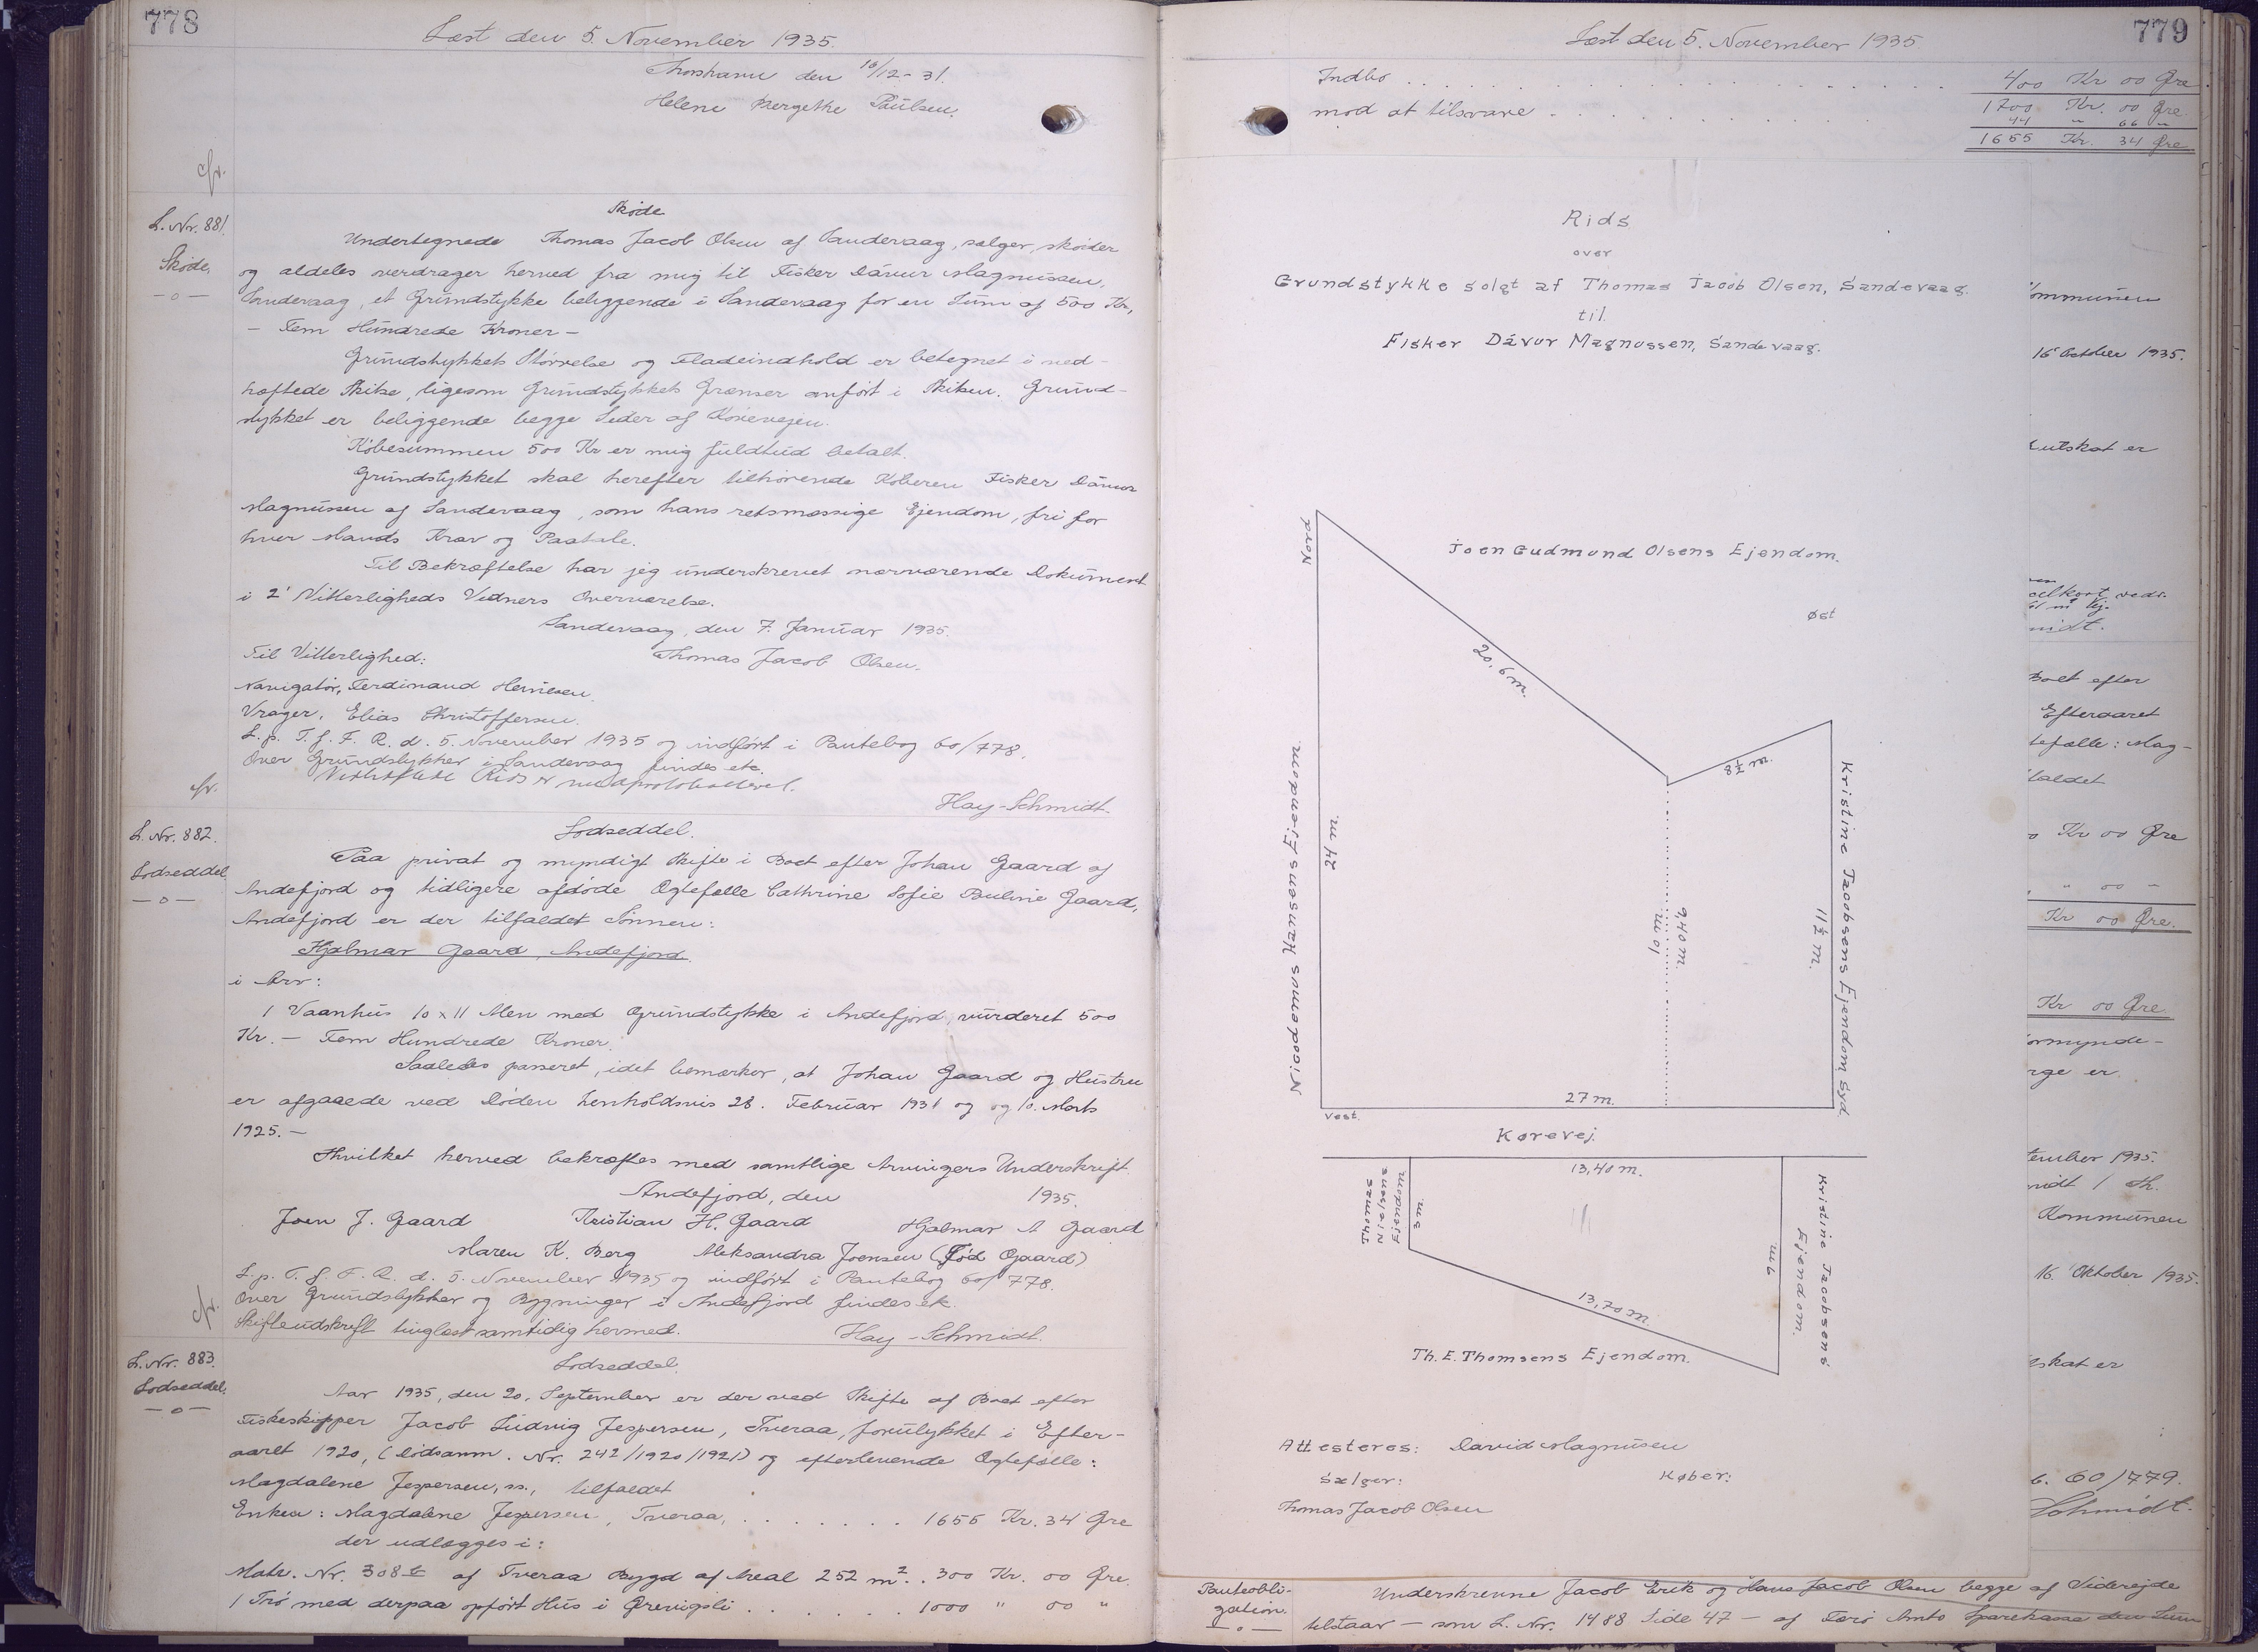 778
Læst den 5. November 1935.
Thorshavn den 16/12-31.
Helene Mergethe Poulsen.
cfr.
L. Nr. 881.
Skøde.
Skøde
Undertegnede Thomas Jacob Olsen af Sandevaag, sælger, skøder
og aldeles overdrager herved fra mig til Fisker Dávur Magnussen,
Sandevaag, et Grundstykke beliggende i Sandevaag for en Sum af 500 Kr,
- Fem Hundrede Kroner -
Grundstykkets Størrelse og Fladeindhold er betegnet i ved-
hæftede Skitse, ligesom Grundstykkets Grænser anført i Skitsen. Grund-
stykket er beliggende begge Sider af Kørevejen.
Købesummen 500 Kr er mig fuldtud betalt.
Grundstykket skal herefter tilhørende Køberen Fisker Dávur
Magnussen af Sandevaag, som hans retsmæssige Ejendom, fri for
hver Mands Krav og Paatale.
Til Bekræftelse har jeg underskrevet nærværende Dokument
i 2' Vitterligheds Vidners Overværelse.
Sandevaag, den 7. Januar 1935.
Til Vitterlighed: Thomas Jacob Olsen.
Navigatør, Ferdinand
Vrager, Elias Christoffersen.
L. p. T. f. F. R. d. 5. November 1935 og indført i Pantebog 60/778.
Over Grundstykker i Sandevaag findes etc.
Vedhæftede Rids er medprotokolleret.
cfr.
Hay-Schmidt.
L. Nr. 882.
Lodseddel
Lodseddel.
Paa privat og myndigt Skifte i Boet efter Johan Gaard af
Andefjord og tidligere afdøde Ægtefælle Cathrine Sofie Pauline Gaard,
Andefjord er der tilfaldet Sønnen:
Hjalmar Gaard, Andefjord.
i Arv:
1 Vaanhus 10 x 11 Alen med Grundstykke i Andefjord, vurderet 500
Kr. - Fem Hundrede Kroner.
Saaledes passeret, idet bemærker, at Johan Gaard og Hustru
er afgaaede ved Døden henholdsvis 28. Februar 1931 og og 10. Marts
1925. -
Hvilket herved bekræftes med samtlige Arvingers Underskrift.
Andefjord, den 1935.
Joen J. Gaard Kristian H. Gaard Hjalmar A Gaard
Maren K. Berg Aleksandra Joensen (Fød Gaard)
L. p. T. f. F. R. d. 5. November 1935 og indført i Pantebog 60/778.
Over Grundstykker og Bygninger i Andefjord findes etc.
cfr.
Skifteudskrift tinglæst samtidig hermed. Hay-Schmidt.
L. Nr. 883.
Lodseddel.
Lodseddel.
Aar 1935, den 20. September er der ved Skifte af Boet efter
Fiskeskipper Jacob Ludvig Jespersen, Tveraa, forulykket i Efter-
aaret 1920, (Dødsanm. Nr. 242/1920/1921) og efterlevende Ægtefælle:
Magdalene Jespersen, ss., tilfaldet
Enken: Magdalene Jespersen, Tveraa, . . . . . . . 1655 Kr. 34 Øre
der udlægges i:
Matr. Nr. 308 af Tveraa Bygd af Areal 252 m². . 300 Kr. 00 Øre.
1 Trø med derpaa opført Hus i . . . . . . . 1000 " 00 "
779
Læst den 5. November 1935
Indbo . . . . . . . . . . 400 Kr 00 Øre
1700 Kr. 00 Øre.
mod at tilsvare . . . . . . . . 44 " 66 "
1655 Kr. 34 Øre
Rids
over
Grundstykke solgt af Thomas Jacob Olsen, Sandevaag.
til.
Fisker Dávur Magnussen, Sandevaag.
Nord
Joen Gudmund Olsens Ejendom.
Øst
20,6 m.
8 1/2 m.
Nicodemus Hansens Ejendom.
24 m.
10 m
9,40 m.
11 1/2 m.
Kristine Jacobsens Ejendom Syd.
27 m.
Vest.
Kørevej.
13,40 m.
Thomas
Nielsens
Ejendom
3 m
9 m
Kristine Jacobsens
Ejendom.
13,70 m.
Th. E. Thomsens Ejendom.
Attesteres: David Magnusen
Sælger: Køber:
Thomas Jacob Olsen
ommunen
16 October 1935.
utskat er
Boet efter
Efteraaret
tefælle: Mag-
faldet
Kr 00 Øre
" 00 "
Kr 00 Øre.
Kr 00 Øre
ormynde-
rge er
tember 1935.
midt / Th.
Kommunen
16. Oktober 1935.
skat er
b. 60/779.
Schmidt.
Panteobli-
gation.
Underskrevne Jacob Erik og Hans Jacob Olsen begge af Siderejde
tilstaar - som L. Nr. 1488 Side 47 - af Færø Amts Sparekasse den Sum